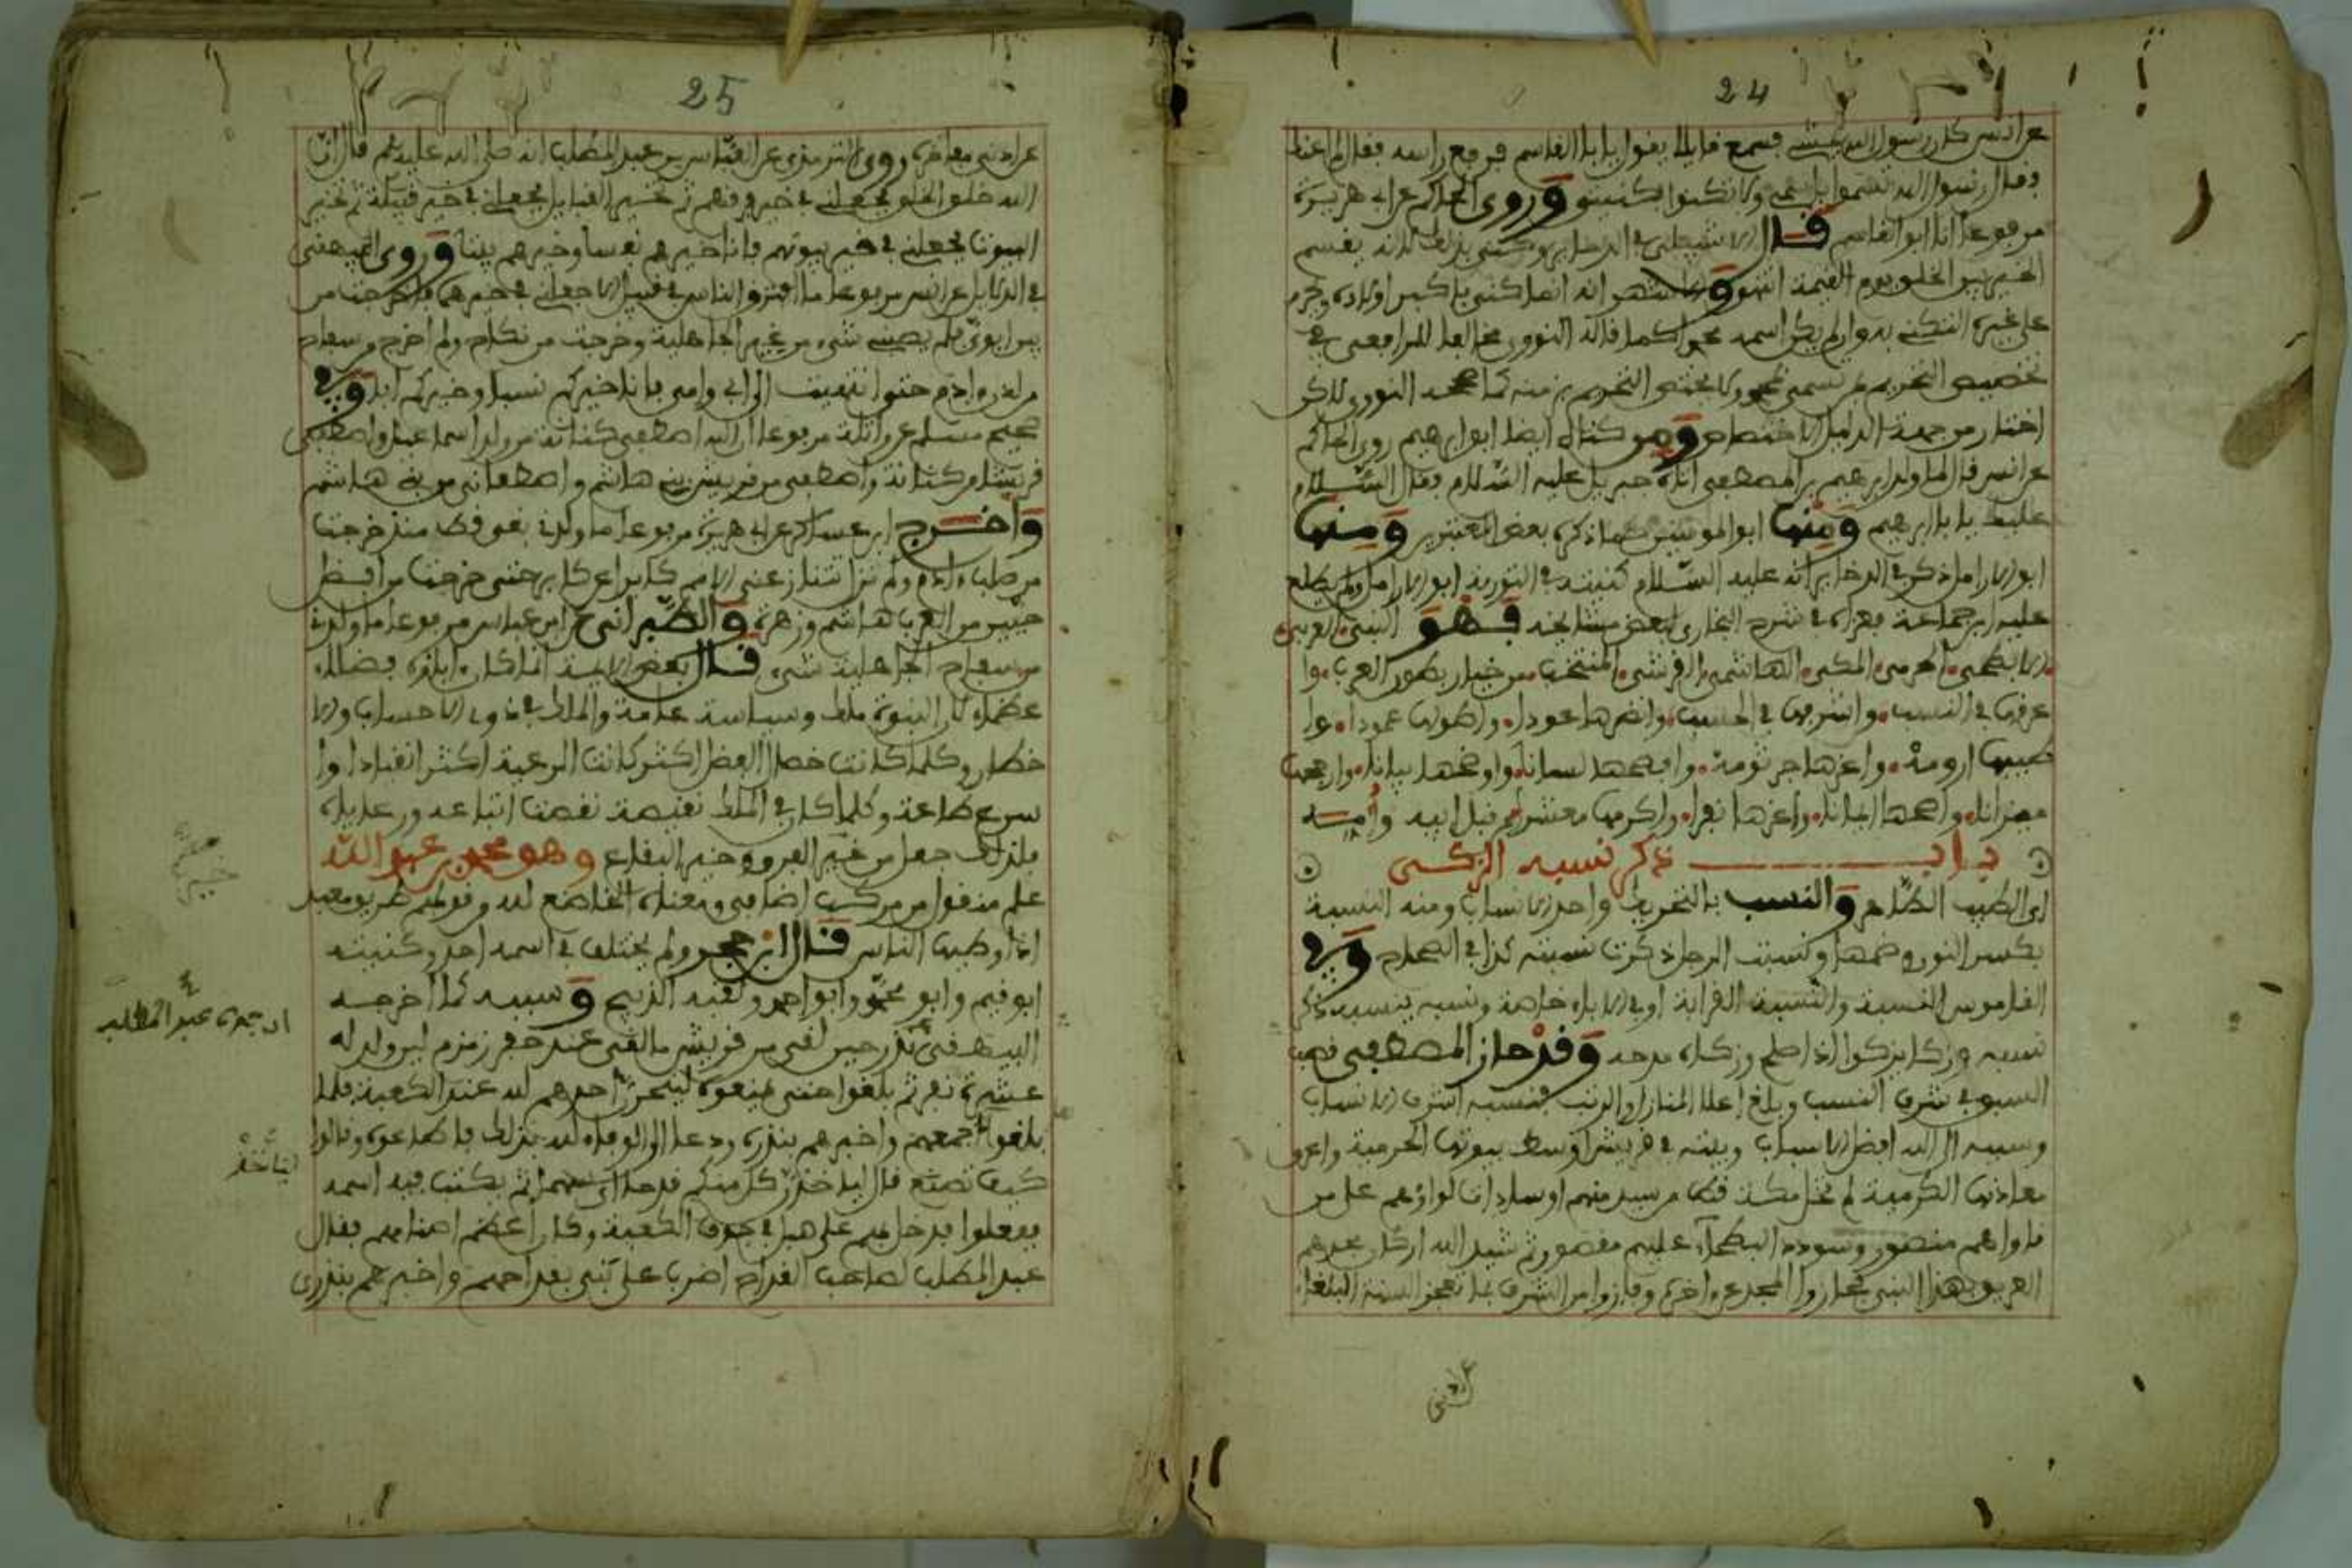 24
عن انس كان رسول الله يمشي فسمع قايلا يقول يا ابا القاسم فرفع راسه فقال لم اعنك
فقال رسول الله تسموا باسمي ولا تكنوا بكنيتي وروى الحاكم عن ابي هريرة
مرفوعا انا ابو القاسم قال الاشبيلي في الدخاير وكني بذلك لانه يقسم
الخير بين الخلق يوم القيمة انتهى والاشهر انه انما كني باكبر اولاده وحرم
على غيره التكني به وان لم يكن اسمه محمدا كما قاله النووي مخالفا للرافعي في
تخصيص التحريم بمن تسمى محمد ولا يختص التحريم بزمنه كما صححه النووي لاكن
من جهة الدليل الاختصاص ومن كناه ايضا ابو ابرهيم روى الحاكم
عن انس قال لما ولد ابرهيم بن المصطفى اتاه جبريل عليه السلام فقال السلام
عليك يا ابا ابرهيم ومنها ابو المومنين كما ذكره بعض المفسرين ومنها
ابو الارامل ذكر في الدخاير انه عليه السلام كنيته في التورية ابو الارامل ولم يطلع
عليه ابن جماعة فعزاه في شرح البخاري لبعض مشايخه فهو النبي العربي
الابطحي الحرمي المكي الهاشمي القرشي المنتخب من خيار بطون العرب وا
عرقها في النسب واشرفها في الحسب وانضرها عودا واطولها عمودا وا
طيبها ارومة واعزها جرثومة وافصحها لسانا واوضحها بيانا وارجحها
ميزانا واصحها ايمانا واعزها نفرا واكرمها معشرا من قبل ابيه وامه
باب ذكر نسبه الزكي
اي الطيب الطاهر والنسب بالتحريك واحد الانساب ومنه النسبة
بكسر النون وضمها ونسبت الرجل ذكرت نسبته كذا في الصحاح وفي
القاموس النسبة والنسبة القرابة او في الاباء خاصة ونسبه ينسبه ذكر
نسبه وزكا يزكوا اذا صلح وزكاه مدحه وقد حاز المصطفى قصب
السبق في شرف النسب وبلغ اعلا المنازل والرتب فنسبه اشرف الانساب
وسببه الى الله افضل الاسباب وبيته في قريش اوسط بيوتها الحرمية واعرق
معادنها الكرمية لم تخل مكة قط من سيد منهم او سادات لواؤهم على من
ناواهم منصور وسودد البطحآء عليهم مقصور ثم شيد الله اركان مجدهم
العريق بهذا النبي فحازوا المجد عن اخره وفازوا من الشرف بما تعجز السنة البلغاء
25
عن ادنى مفاخره روى الترمذي عن العباس بن عبد المطلب انه صلى الله عليه وسلم قال ان
الله خلق الخلق فجعلني في خير فرقهم ثم تخير القبايل فجعلني في خير قبيلة ثم تخير
البيوت فجعلني في خير بيوتهم فانا خيرهم نفسا وخيرهم بيتا وروى البيهقي
في الدلايل عن انس مرفوعا ما افترق الناس فرقتين الا جعلني في خيرهما فاخرجت من
بين ابوي فلم يصبني شيء من عهر الجاهلية وخرجت من نكاح ولم اخرج من سفاح
من لدن ادم حتى انتهيت الى ابي وامي فانا خيركم نسبا وخيركم ابا وفي
صحيح مسلم عن واثلة مرفوعا ان الله اصطفى كنانة من ولد اسماعيل واصطفى
قريشا من كنانة واصطفى من قريش بني هاشم واصطفاني من بني هاشم
واخرج ابن عساكر عن ابي هريرة مرفوعا ما ولدتني بغي قط منذ خرجت
من صلب ءادم ولم تزل تتنازعني الامم كابرا عن كابر حتى خرجت من افضل
حيين من العرب هاشم وزهرة والطبراني عن ابن عباس مرفوعا ما ولدني
من سفاح الجاهلية شيء قال بعض الايمة لما كان
كان النبوة ملك وسياسة عامة والملك في ذوي الاحساب والا
خطار وكلما كانت خصال الفضل اكثر كانت الرعية اكثر انقيادا وا
سرع طاعة وكلما كان في الملك نقيصة نقصت اتباعه ورعاياه
فلذلك جعل من خير الفرق وخير البقاع وهو محمد بن عبد الله
علم منقول من مركب اضافي ومعناه الخاضع لله وقولهم طريق معبد
اذا وطيها الناس قال ابن حجر ولم يختلف في اسمه احد وكنيته
ابو قثم وابو محمد وابو احمد ولقبه الذبيح وسببه كما اخرجه
البيهقي نذر حين لقي من قريش ما لقي عند حفر زمزم لين ولد له
عشرة نفر ثم بلغوا حتى يمنعوه لينحرن احدهم لله عند الكعبة فلما
بلغوا جمعهم واخبرهم بنذره ودعا الى الوفاء لله بذلك فاطاعوه وقالوا
كيف نصنع قال لياخذ كل منكم قدحا اي سهما ثم يكتب فيه اسمه
ففعلوا فدخل بهم على هبل في جوف الكعبة وكان اعظم اصنامهم فقال
عبد المطلب لصاحب القداح اضرب على بني بقداحهم واخبرهم بنذري
ان جده عبد المطلب
لياخذ
عن ادنى